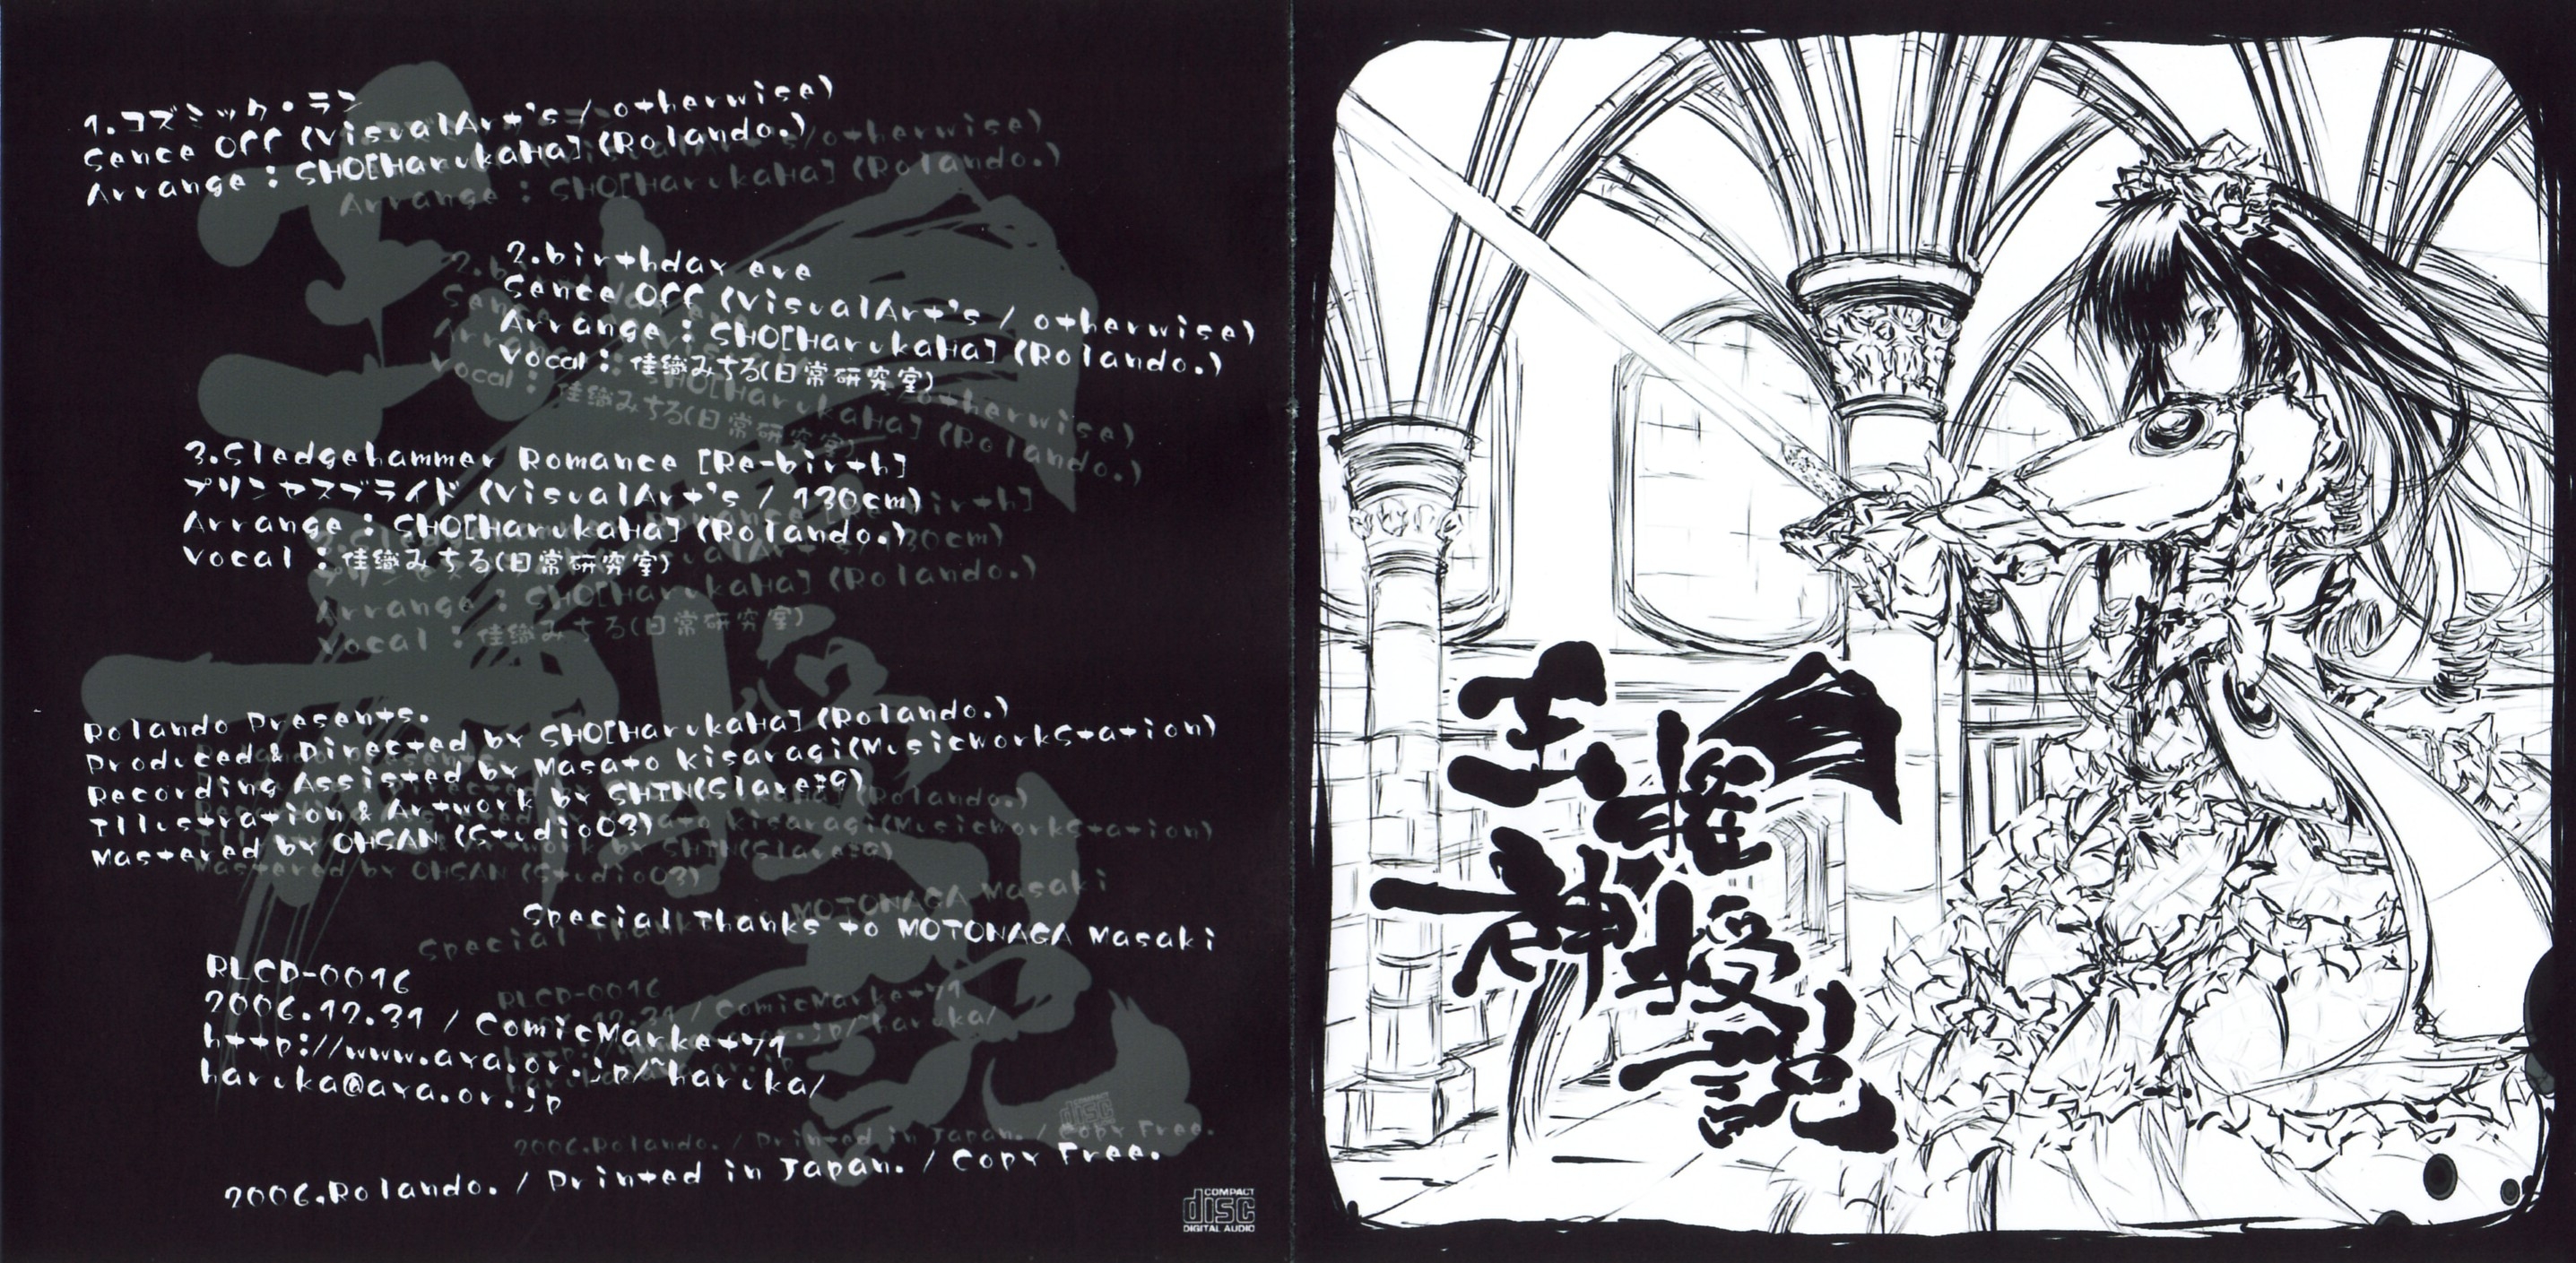 1.コズミック・ラン
Sence Off (VisualArt's / otherwise)
Arrange : SHO[HarukaHa] (Rolando.)
2.birthday eve
Sence Off (VisualArt's / otherwise)
Arrange : SHO[HarukaHa] (Rolando.)
Vocal : 佳織みちる(日常研究室)
3.Sledgehammer Romance [Re-birth]
プリンセスブライド (VisualArt's / 130cm)
Arrange : SHO[HarukaHa] (Rolando.)
Vocal : 佳織みちる(日常研究室)
Rolando Presents.
Produced & Directed by SHO[HarukaHa] (Rolando.)
Recording Assisted by Masato Kisaragi(MusicWorkStation)
Illustration & Artwork by SHIN(Slave#9)
Mastered by OHSAN (Studio03)
Special Thanks to MOTONAGA Masaki
RLCD-0016
2006.12.31 / ComicMarket71
http://www.aya.or.jp/~haruka/
haruka@aya.or.jp
2006.Rolando. / Printed in Japan. / Copy Free.
COMPACT
disc
DIGITAL AUDIO
王権
神授
説